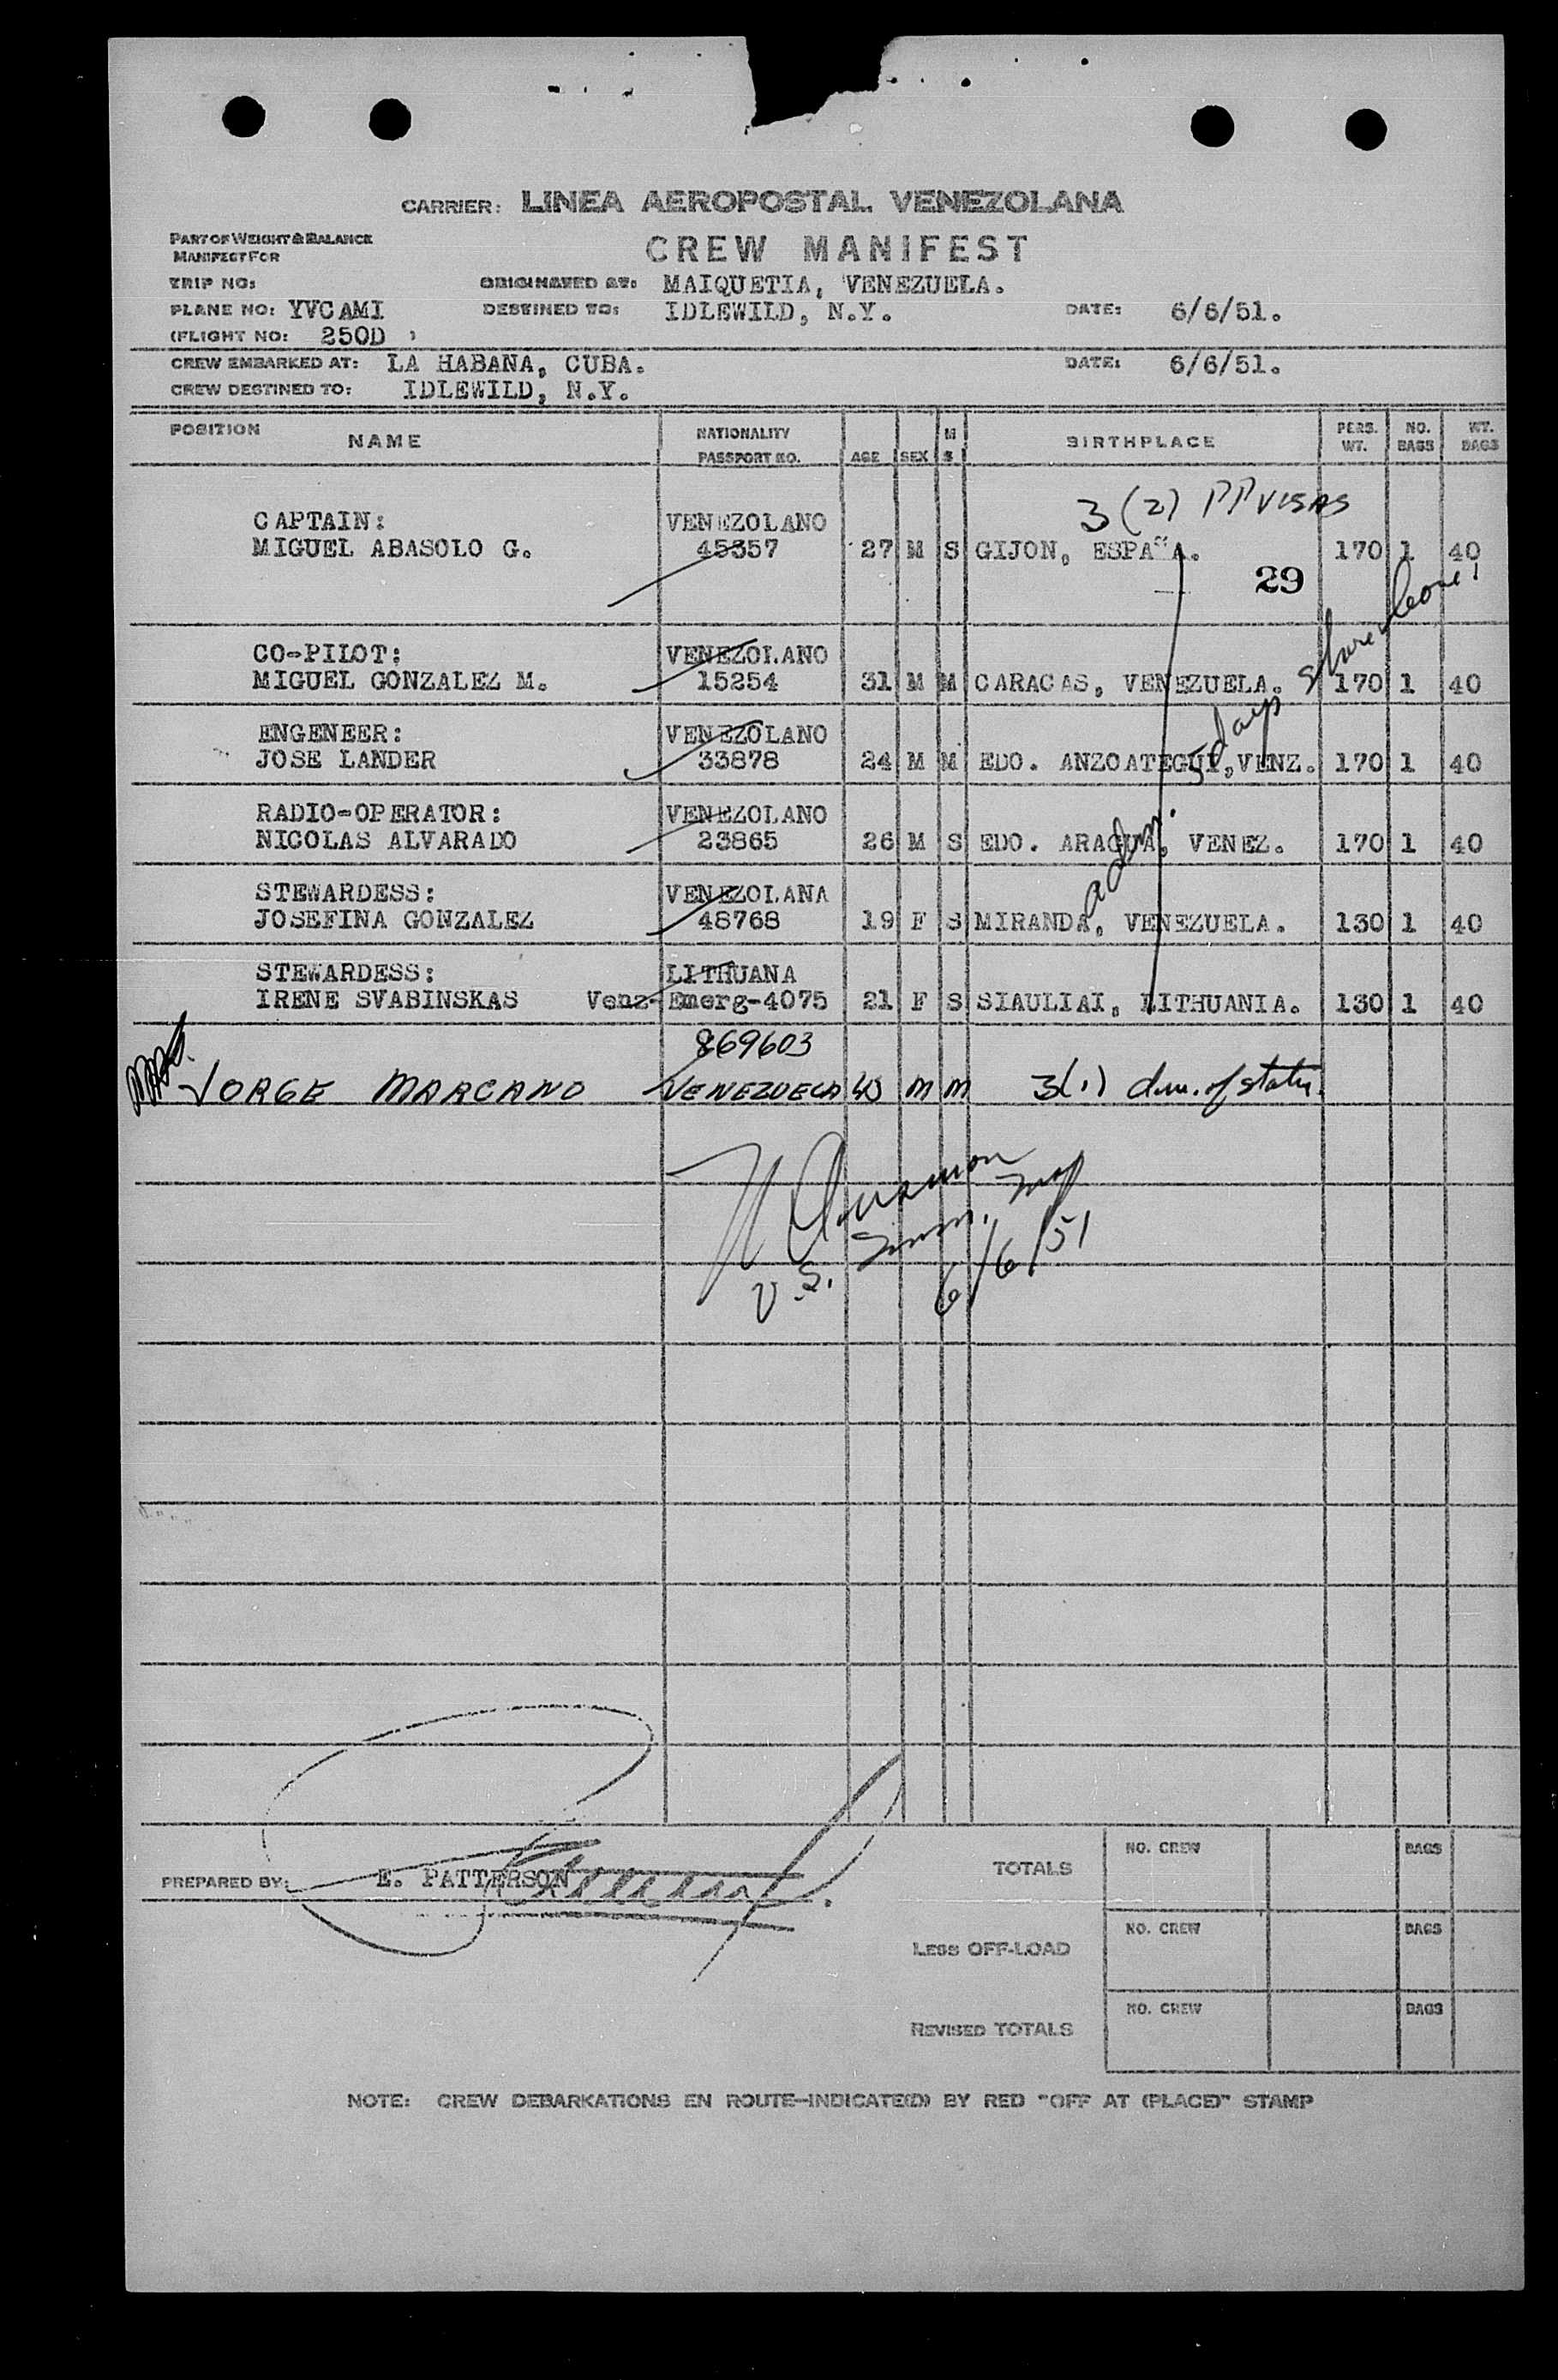 CARRIER: LINEA AEROPOSTAL VENEZOLANA
PART OF WEIGHT & BALANCE
MANIFEST FOR
CREW MANIFEST
TRIP NO: ORIGINATED AT: MAIQUETIA, VENEZUELA.
PLANE NO: YVCAMI DESTINED TO: IDLEWILD, N.Y. DATE: 6/6/51.
(FLIGHT NO: 250D )
CREW EMBARKED AT: LA HABANA, CUBA. DATE: 6/6/51.
CREW DESTINED TO: IDLEWILD, N.Y.
POSITION NAME NATIONALITY PASSPORT NO. AGE SEX M S BIRTHPLACE PERS. WT. NO. BAGS WT. BAGS
3 (2) PP VISAS
CAPTAIN: VENEZOLANO
MIGUEL ABASOLO G. 45357 27 M S GIJON, ESPAÑA. 170 1 40
29
CO-PILOT: VENEZOLANO
MIGUEL GONZALEZ M. 15254 31 M M CARACAS, VENEZUELA. 170 1 40
ENGENEER: VENEZOLANO
JOSE LANDER 33878 24 M M EDO. ANZOATEGUI, VENZ. 170 1 40
RADIO-OPERATOR: VENEZOLANO
NICOLAS ALVARADO 23865 26 M S EDO. ARAGUA, VENEZ. 170 1 40
STEWARDESS: VENEZOLANA
JOSEFINA GONZALEZ 48768 19 F S MIRANDA, VENEZUELA. 130 1 40
STEWARDESS: LITHUANA
IRENE SVABINSKAS Venz-Emerg-4075 21 F S SIAULIAI, LITHUANIA. 130 1 40
adm. 5 days shore leave
869603
JORGE MARCANO VENEZUELA 40 M M 3(1) of status.
U.S. Imm. Insp
6/6/51
PREPARED BY: E. PATTERSON
TOTALS NO. CREW BAGS
LESS OFF-LOAD NO. CREW BAGS
REVISED TOTALS NO. CREW BAGS
NOTE: CREW DEBARKATIONS EN ROUTE-INDICATE(D) BY RED "OFF AT (PLACE)" STAMP